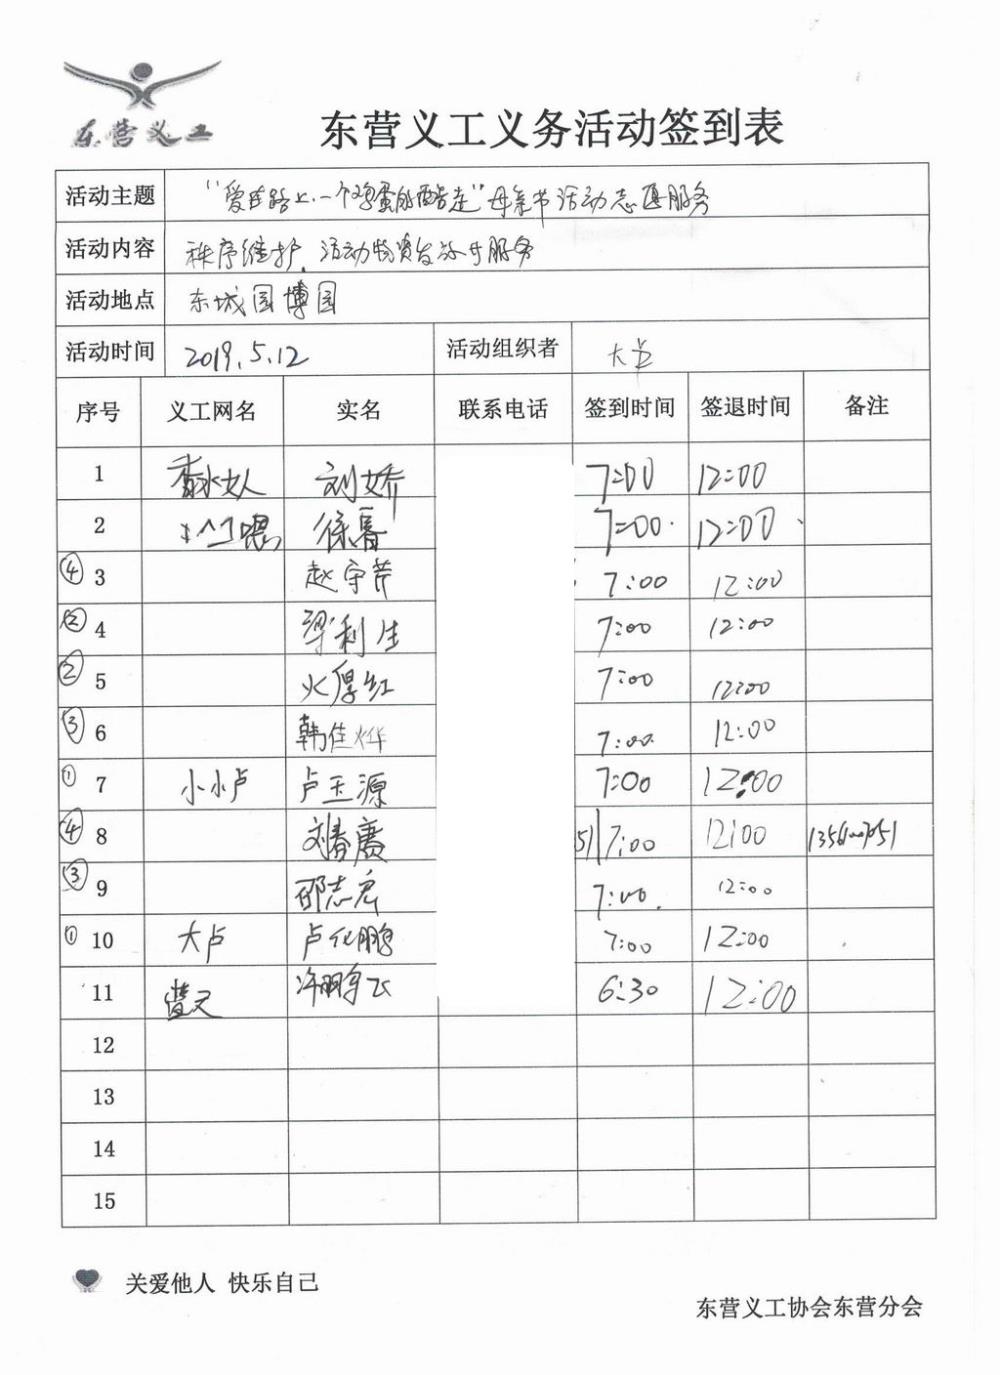 东营义工
东营义工义务活动签到表
活动主题 "爱在路上·一个鸡蛋的暴走"母亲节活动志愿服务
活动内容 秩序维护、活动物资发放等服务
活动地点 东城园博园
活动时间 2019.5.12 活动组织者 大卢
序号 义工网名 实名 联系电话 签到时间 签退时间 备注
1 香水女人 刘娇 7:00 12:00
2 徐春 7:00 12:00
④ 3 赵守芹 7:00 12:00
② 4 梁利生 7:00 12:00
② 5 火厚红 7:00 12:00
③ 6 韩佳烨 7:00 12:00
① 7 小小卢 卢玉源 7:00 12:00
④ 8 刘春广 51 7:00 12:00
③ 9 邵志宏 7:00 12:00
① 10 大卢 卢化鹏 7:00 12:00
11 许鹏飞 6:30 12:00
12
13
14
15
关爱他人 快乐自己
东营义工协会东营分会